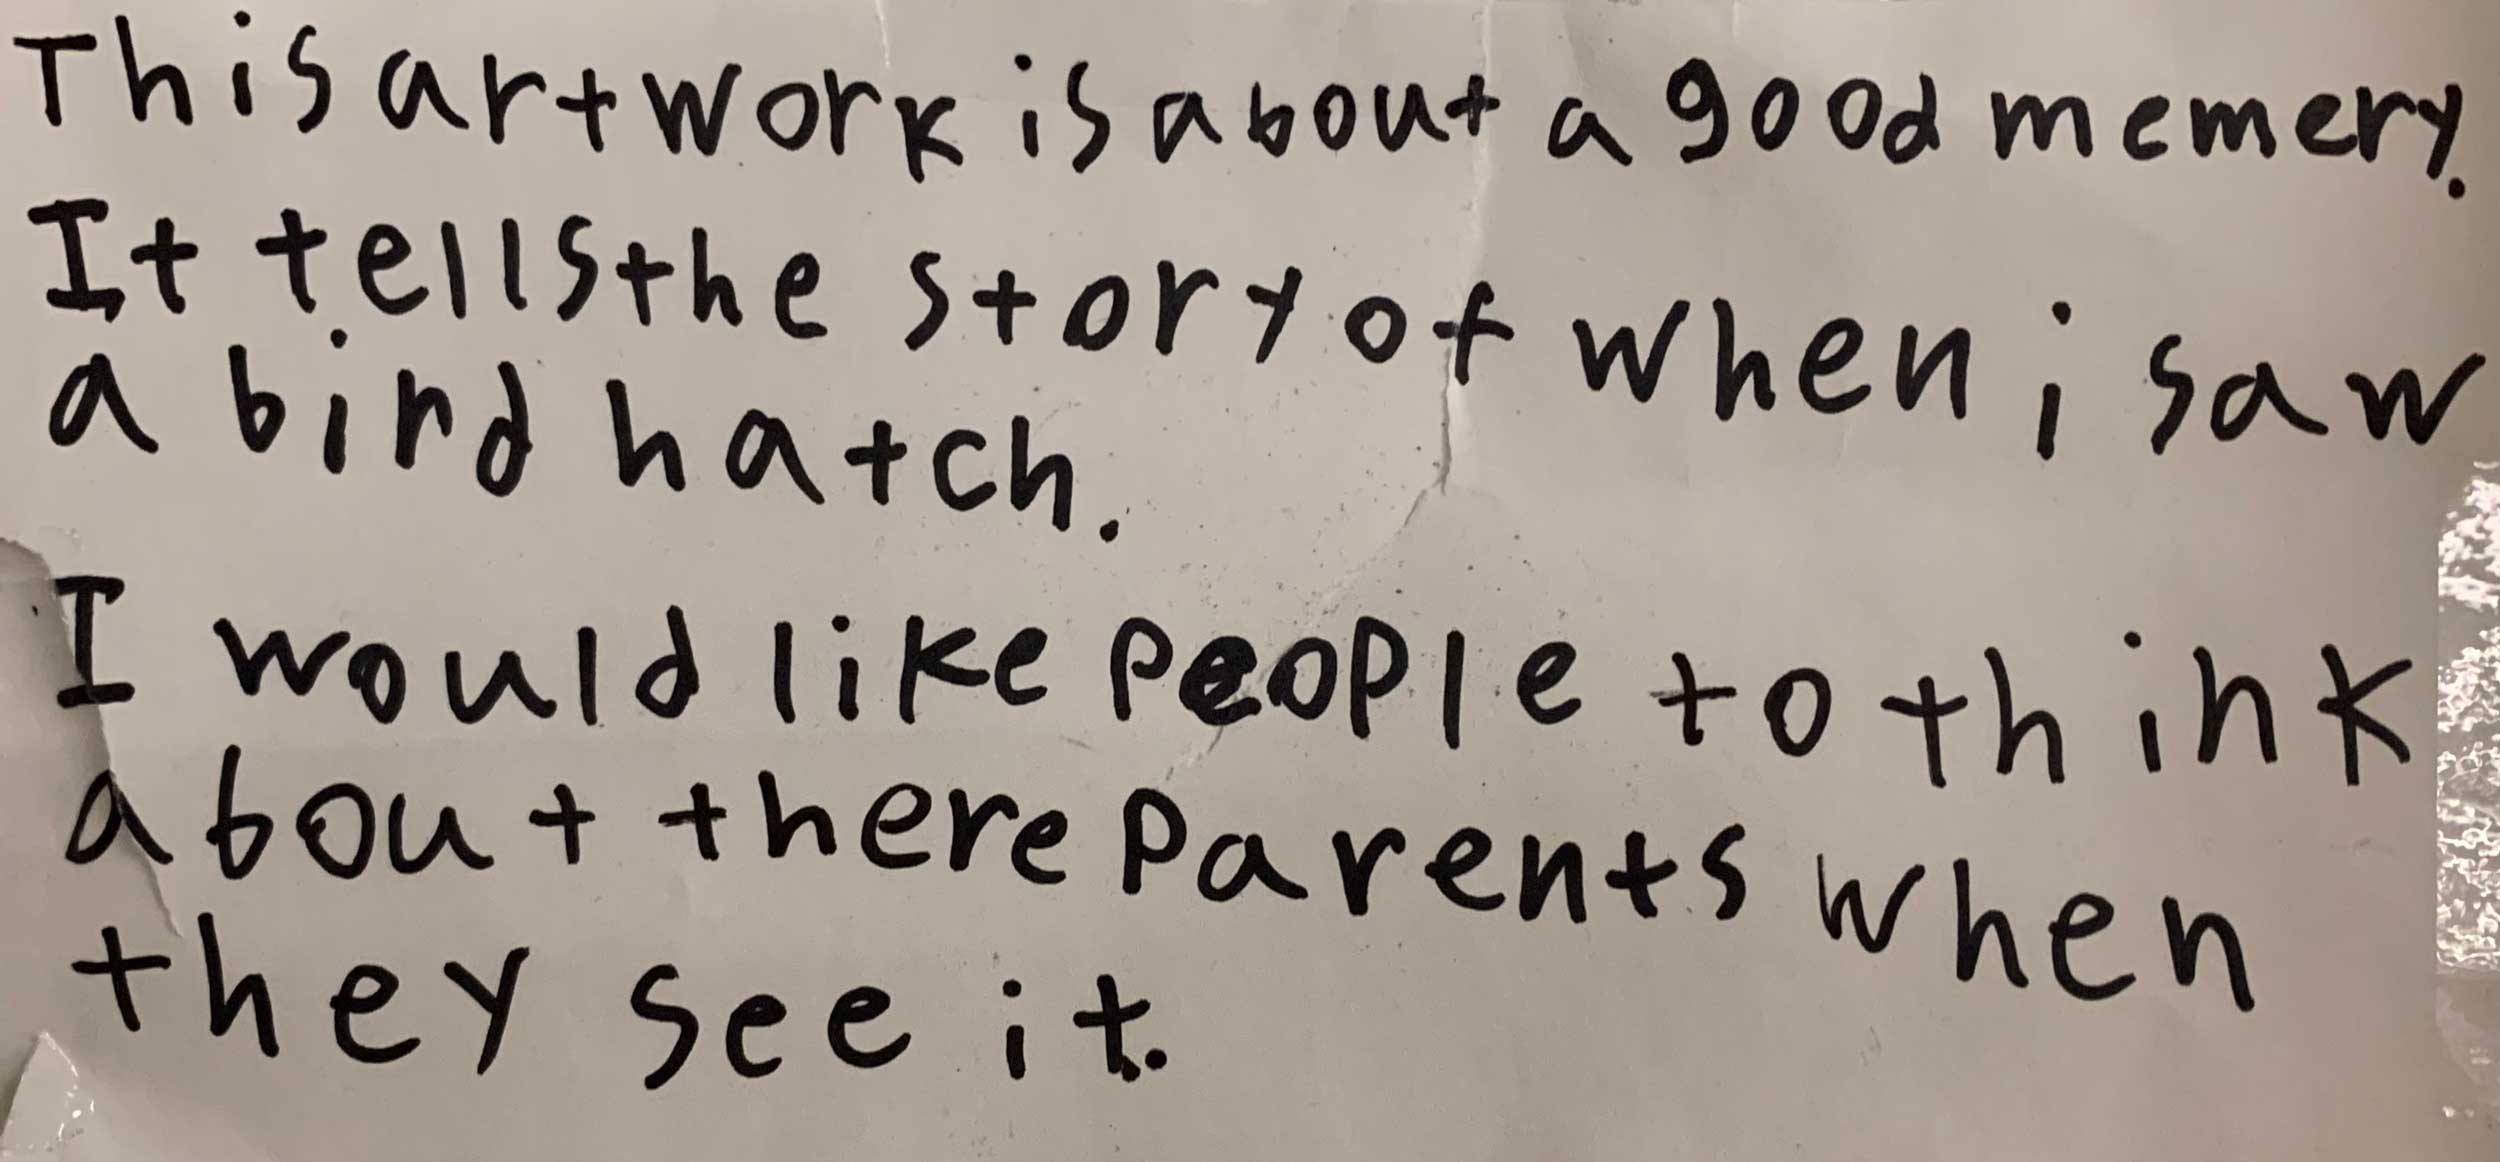 This artwork is about a good memery.
It tells the story of when i saw
a bird hatch.
I would like people to think
about there parents when
they see it.